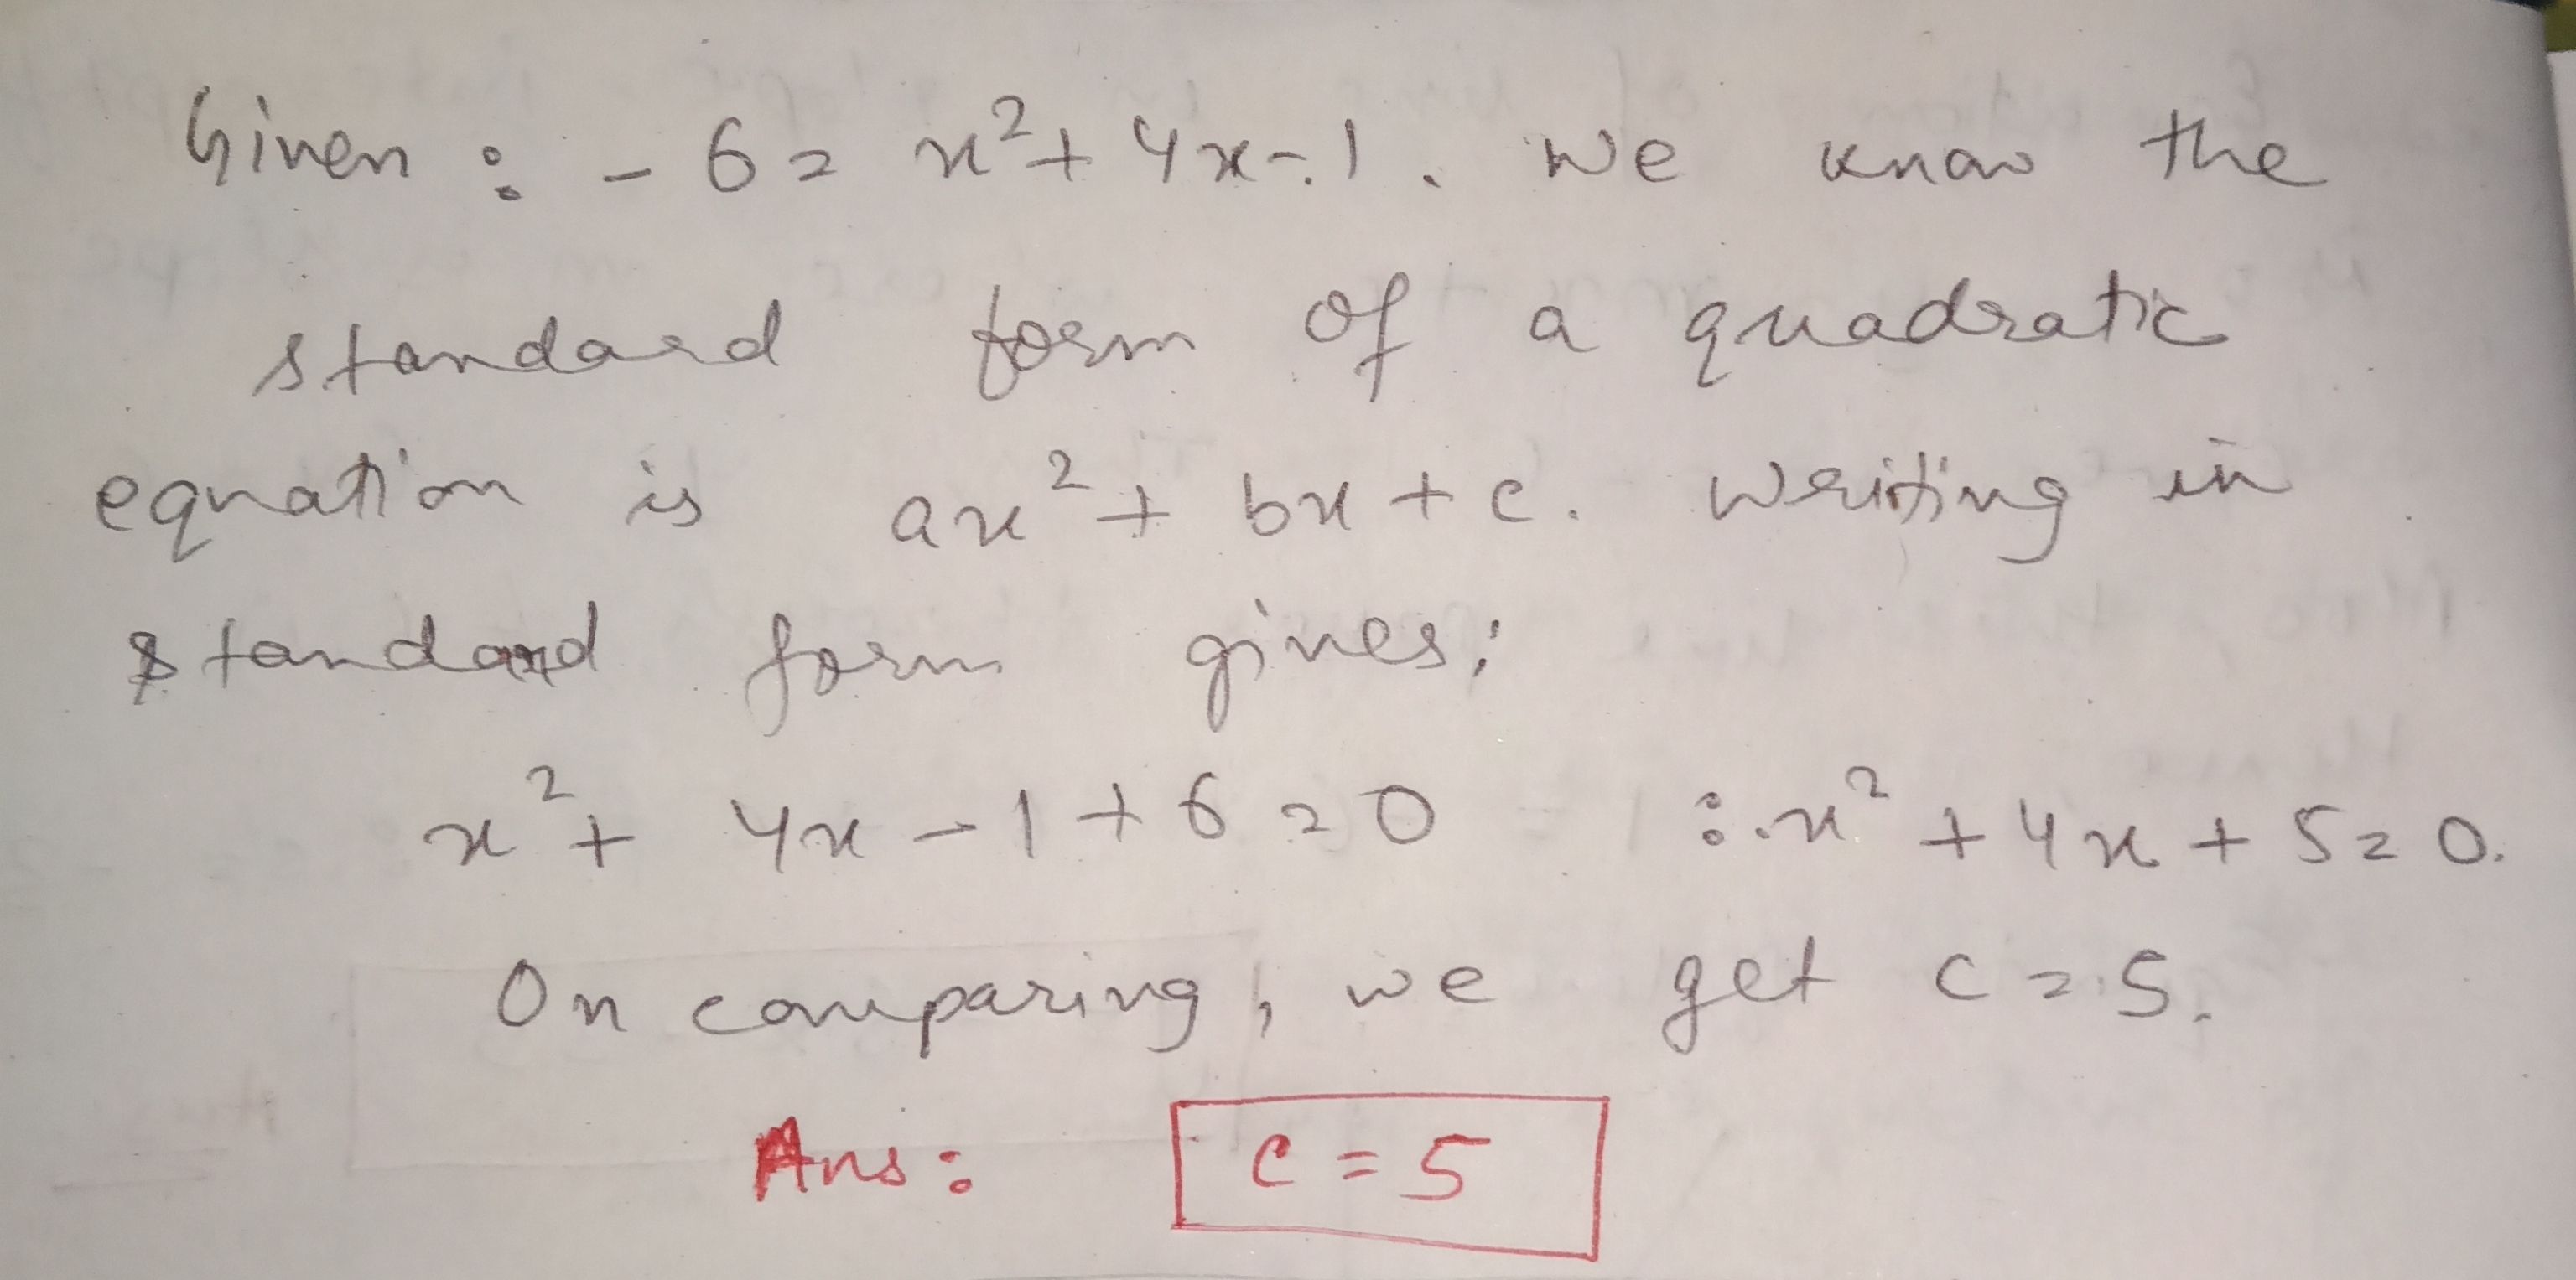 Given : - 6 = x² + 4x - 1. We know the
standard form of a quadratic
equation is ax² + bx + c. Writing in
standard form gives:
x² + 4x - 1 + 6 = 0 ∴ x² + 4x + 5 = 0.
On comparing, we get c = 5.
Ans: c = 5